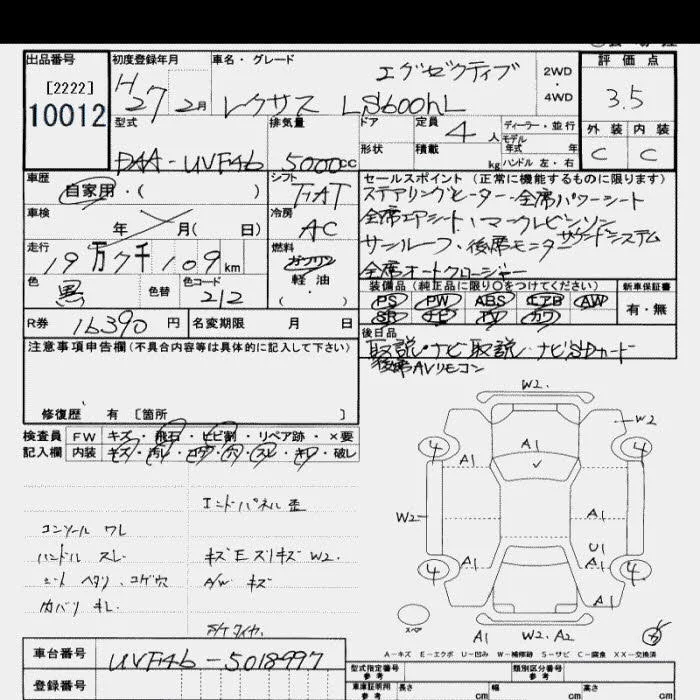 出品番号
[2222]
10012
初度登録年月
H27 2月
車名・グレード
エグゼクティブ
レクサス LS600hL
2WD
・
4WD
評価点
3.5
外装 内装
C C
型式
DAA-UVF46
排気量
5000cc
ドア
形状
定員
4人
積載
kg
ディーラー・並行
モデル
年式 年
ハンドル 左・右
車歴
自家用・( )
シフト
FAT
車検
年 月( 日)
冷房
AC
走行
19万7千109km
燃料
ガソリン
軽油
・
( )
色
黒
色替
色コード
212
R券 16390円
名変期限 月 日
セールスポイント(正常に機能するものに限ります)
ステアリングヒーター・全席パワーシート
全席エアシート・マークレビンソン
サンルーフ・後席モニター サウンドシステム
全席オートクロージャー
装備品(純正品に限り○をつけてください)
新車保証書
PS PW ABS エアB AW
SR ナビ TV カワ
有・無
後日品
取説・ナビ取説・ナビSDカード
後席AVリモコン
注意事項申告欄(不具合内容等は具体的に記入して下さい)
修復歴 有 [箇所 ]
検査員
記入欄
FW キズ・飛石・ヒビ割・リペア跡・×要
内装 キズ・汚レ・コゲ・穴・スレ・キレ・破レ
インドパネル歪
コンソール ワレ
ハンドル スレ
キズEスリキズ W2.
シート ヘタリ、コゲ穴
A/W キズ
内バリ キレ
片ケタイヤ
W2.
W2
4 4
A1
A1
W2
A1
U1
A1
A1
4 4
A1
スペア
A1 W2. A2
A−キズ E−エクボ U−凹み W−補修跡 S−サビ C−腐食 XX−交換済
車台番号
UVF46-5018997
登録番号
型式指定番号
類別区分番号
車庫証明用
参考
長さ cm
幅 cm
高さ cm